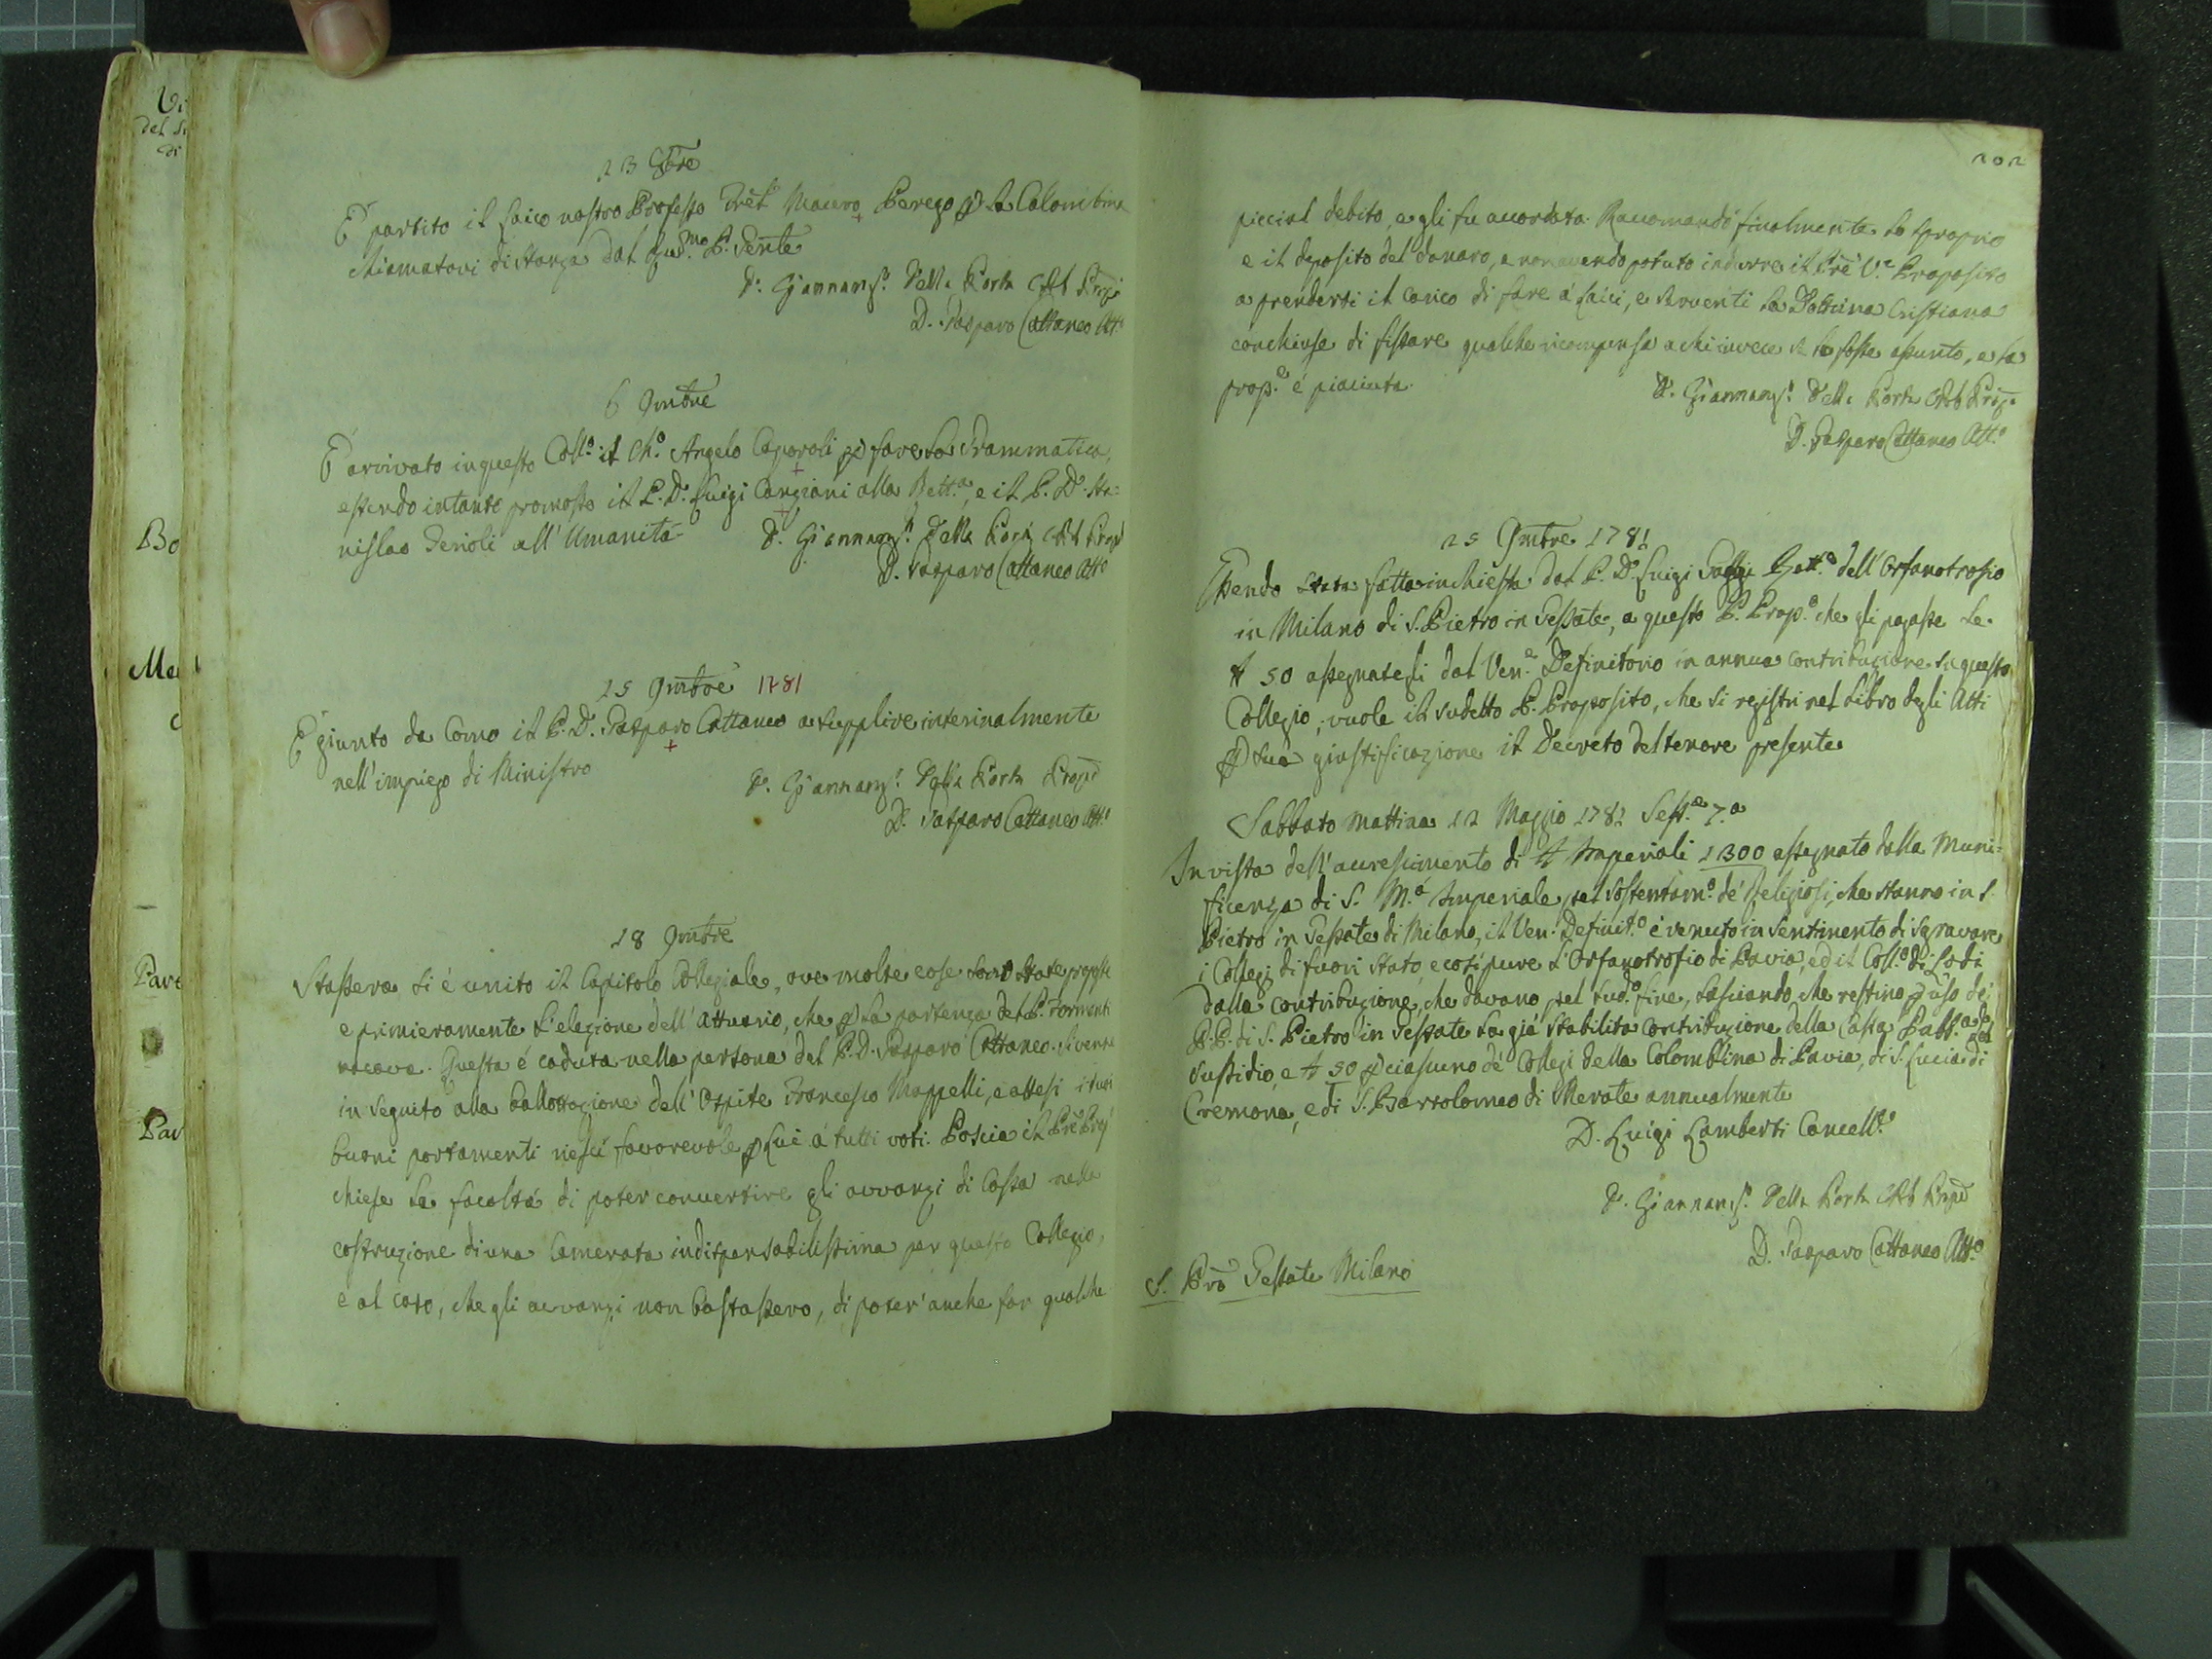 23 8bre
È partito il Laico nostro Professo Frel Mauro Perego p la Colombina
chiamatovi di stanza dal Rev.mo P. Gente
D. Giannant.o Della Porta CRS Prop.o
D. Gasparo Cattaneo Att.o
6 9mbre
È arrivato in questo Coll.o il Ch.o Angelo Caporoli p fare la Grammatica,
essendo intanto promosso il P. D. Luigi Cangiani alla Rett.a, e il P. D. Sta=
nislao Derioli all' Umanità
D. Giannant.o Della Porta CRS Prop.o
D. Gasparo Cattaneo Att.o
15 9mbre 1781
È giunto da Como il P. D. Gasparo Cattaneo a supplire interinalmente
nell'impiego di Ministro
D. Giannant.o Della Porta Prop.o
D. Gasparo Cattaneo Att.o
18 9mbre
Stassera si é unito il Capitolo Collegiale, ove molte cose sono state proposte
e primieramente l'elezione dell'Attuario, che p la partenza del P. Formenti
mancava. Questa é caduta nella persona del P. D. Gasparo Cattaneo. Si venne
in seguito alla ballottazione dell'Ospite Francesco Mappelli, e attesi i suoi
buoni portamenti riescì favorevole p lui á tutti voti. Poscia il Pre Prop.
chiese la facoltá di poter convertire gli avvanzi di Cassa nella
costruzione di una Camerata indispensabilissima per questo Collegio,
e al caso, che gli avvanzi non bastassero, di poter' anche far qualche
202
picciol debito, e gli fu accordata. Raccomandò finalmente lo sproprio
e il deposito del danaro, e non avendo potuto indurre il Pre V.e Proposito
a prendersi il carico di fare á Laici, e Serventi la Dottrina Cristiana
conchiuse di fissare qualche ricompensa a chi invece se la fosse assunto, e la
prop.e é piaciuta.
D. Giannant.o Della Porta CRS Prop.o
D. Gasparo Cattaneo Att.o
25 9mbre 1781
Essendo stata fatta inchiesta dal P. D. Luigi Sett.o dell'Orfanotrofio
in Milano di S. Pietro in Gessate, a questo P. Prop.o che gli pagasse le
tt 50 assegnategli dal Ven.e Definitorio in annua contribuzione su questo
Collegio, vuole il sudetto P. Proposito, che si registri nel Libro degli Atti
p sua giustificazione il Decreto del tenore presente
Sabbato mattina 12 Maggio 1781 Sess.e 7.a
In vista dell'accrescimento di tt Imperiali 1300 assegnato dalla Muni=
ficenza di S. M.a Imperiale pel sostentam.o de' Religiosi, che stanno in S.
Pietro in Gessate di Milano, il Ven. Definit.o é venuto in sentimento di sgravare
i Collegi di fuori Stato, e così pure l'Orfanotrofio di Pavia, ed il Coll.o di Lodi
dalla contribuzione, che davano pel sud.o fine, lasciando, che restino p uso de'
P.P. di S. Pietro in Gessate la già stabilita contribuzione della Cassa pel
sussidio, e tt 50 p ciascuno de' Collegi della Colombina di Pavia, di S. Lucia di
Cremona, e di S. Bartolomeo di Merate annualmente
D. Luigi Lamberti Cancell.e
D. Giannant.o Della Porta CRS Prop.o
D. Gasparo Cattaneo Att.o
S. Pro Gessate Milano